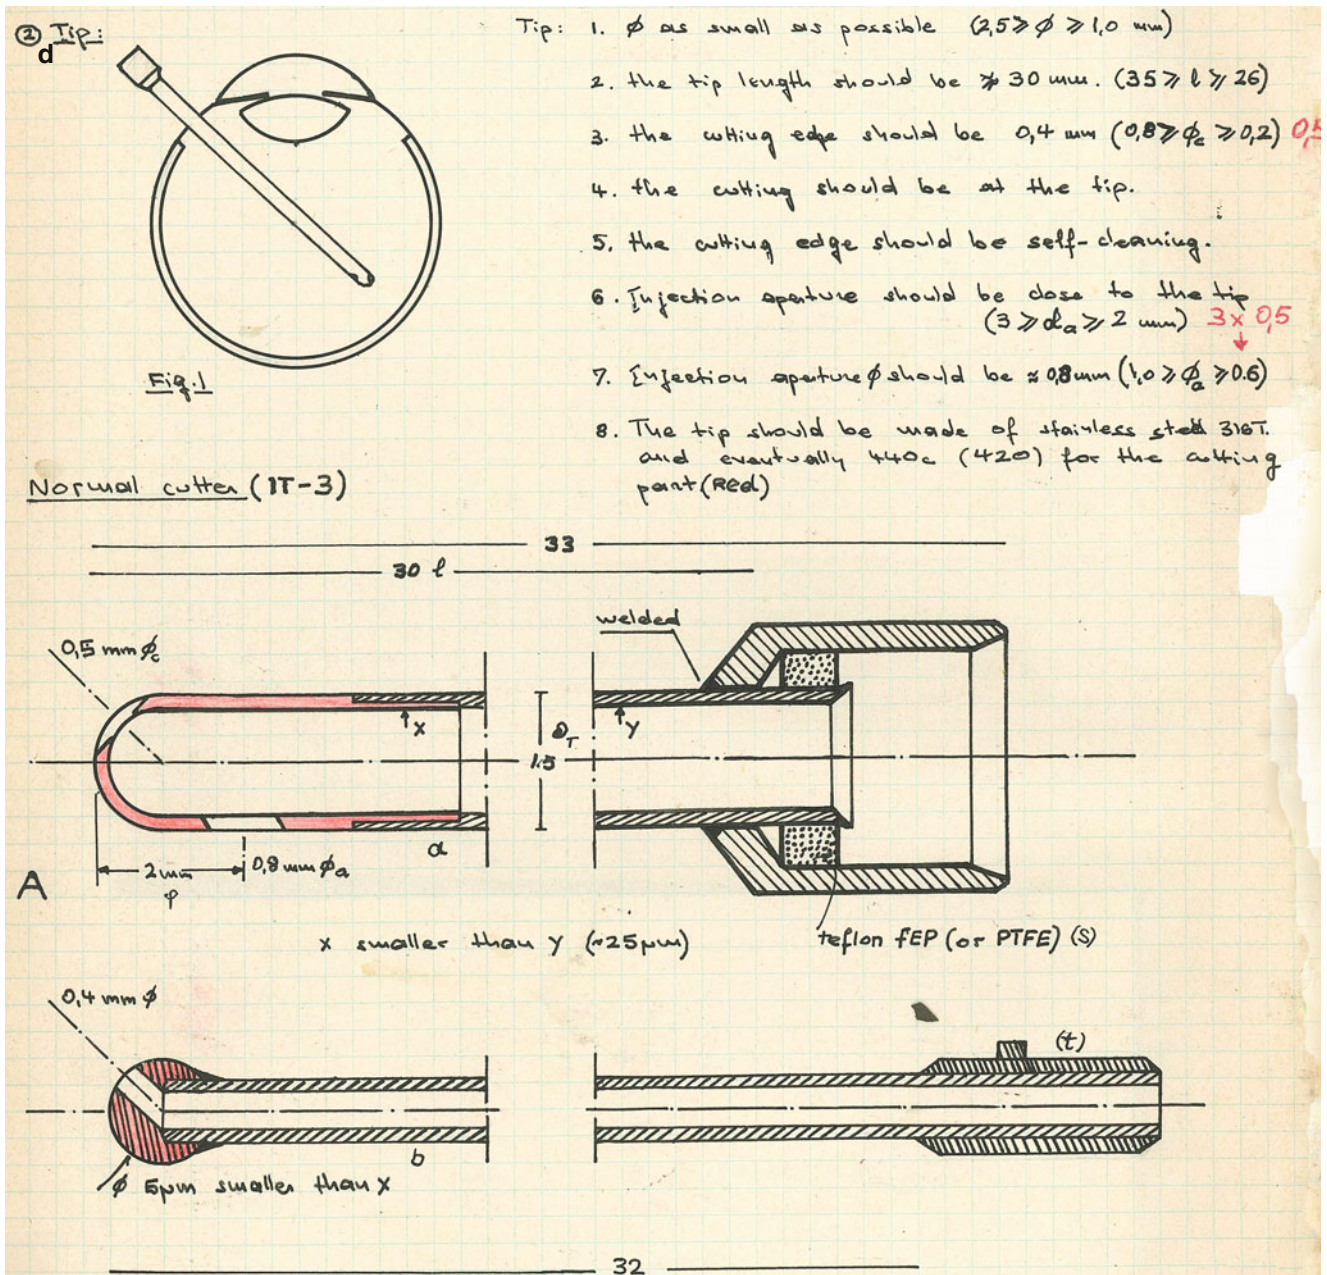 ② Tip:
d
Tip: 1. ϕ as small as possible (2,5 ⩾ ϕ ⩾ 1,0 mm)
2. the tip length should be ≯ 30 mm. (35 ⩾ l ⩾ 26)
3. the cutting edge should be 0,4 mm (0,8 ⩾ ϕc ⩾ 0,2) 0,5
4. the cutting should be at the tip.
5. the cutting edge should be self-cleaning.
6. Injection aperture should be close to the tip
(3 ⩾ da ⩾ 2 mm) 3 x 0,5
7. Injection aperture ϕ should be ≈ 0,8 mm (1,0 ⩾ ϕa ⩾ 0.6)
8. The tip should be made of stainless steel 316T.
and eventually 440c (420) for the cutting
part (Red)
Fig.1
Normal cutter (IT-3)
33
30 l
welded
0,5 mm ϕc
x
y
1.5
a
2 mm
0,8 mm ϕa
A
x smaller than y (~25µm)
teflon FEP (or PTFE) (S)
0,4 mm ϕ
(t)
b
ϕ 5µm smaller than x
32